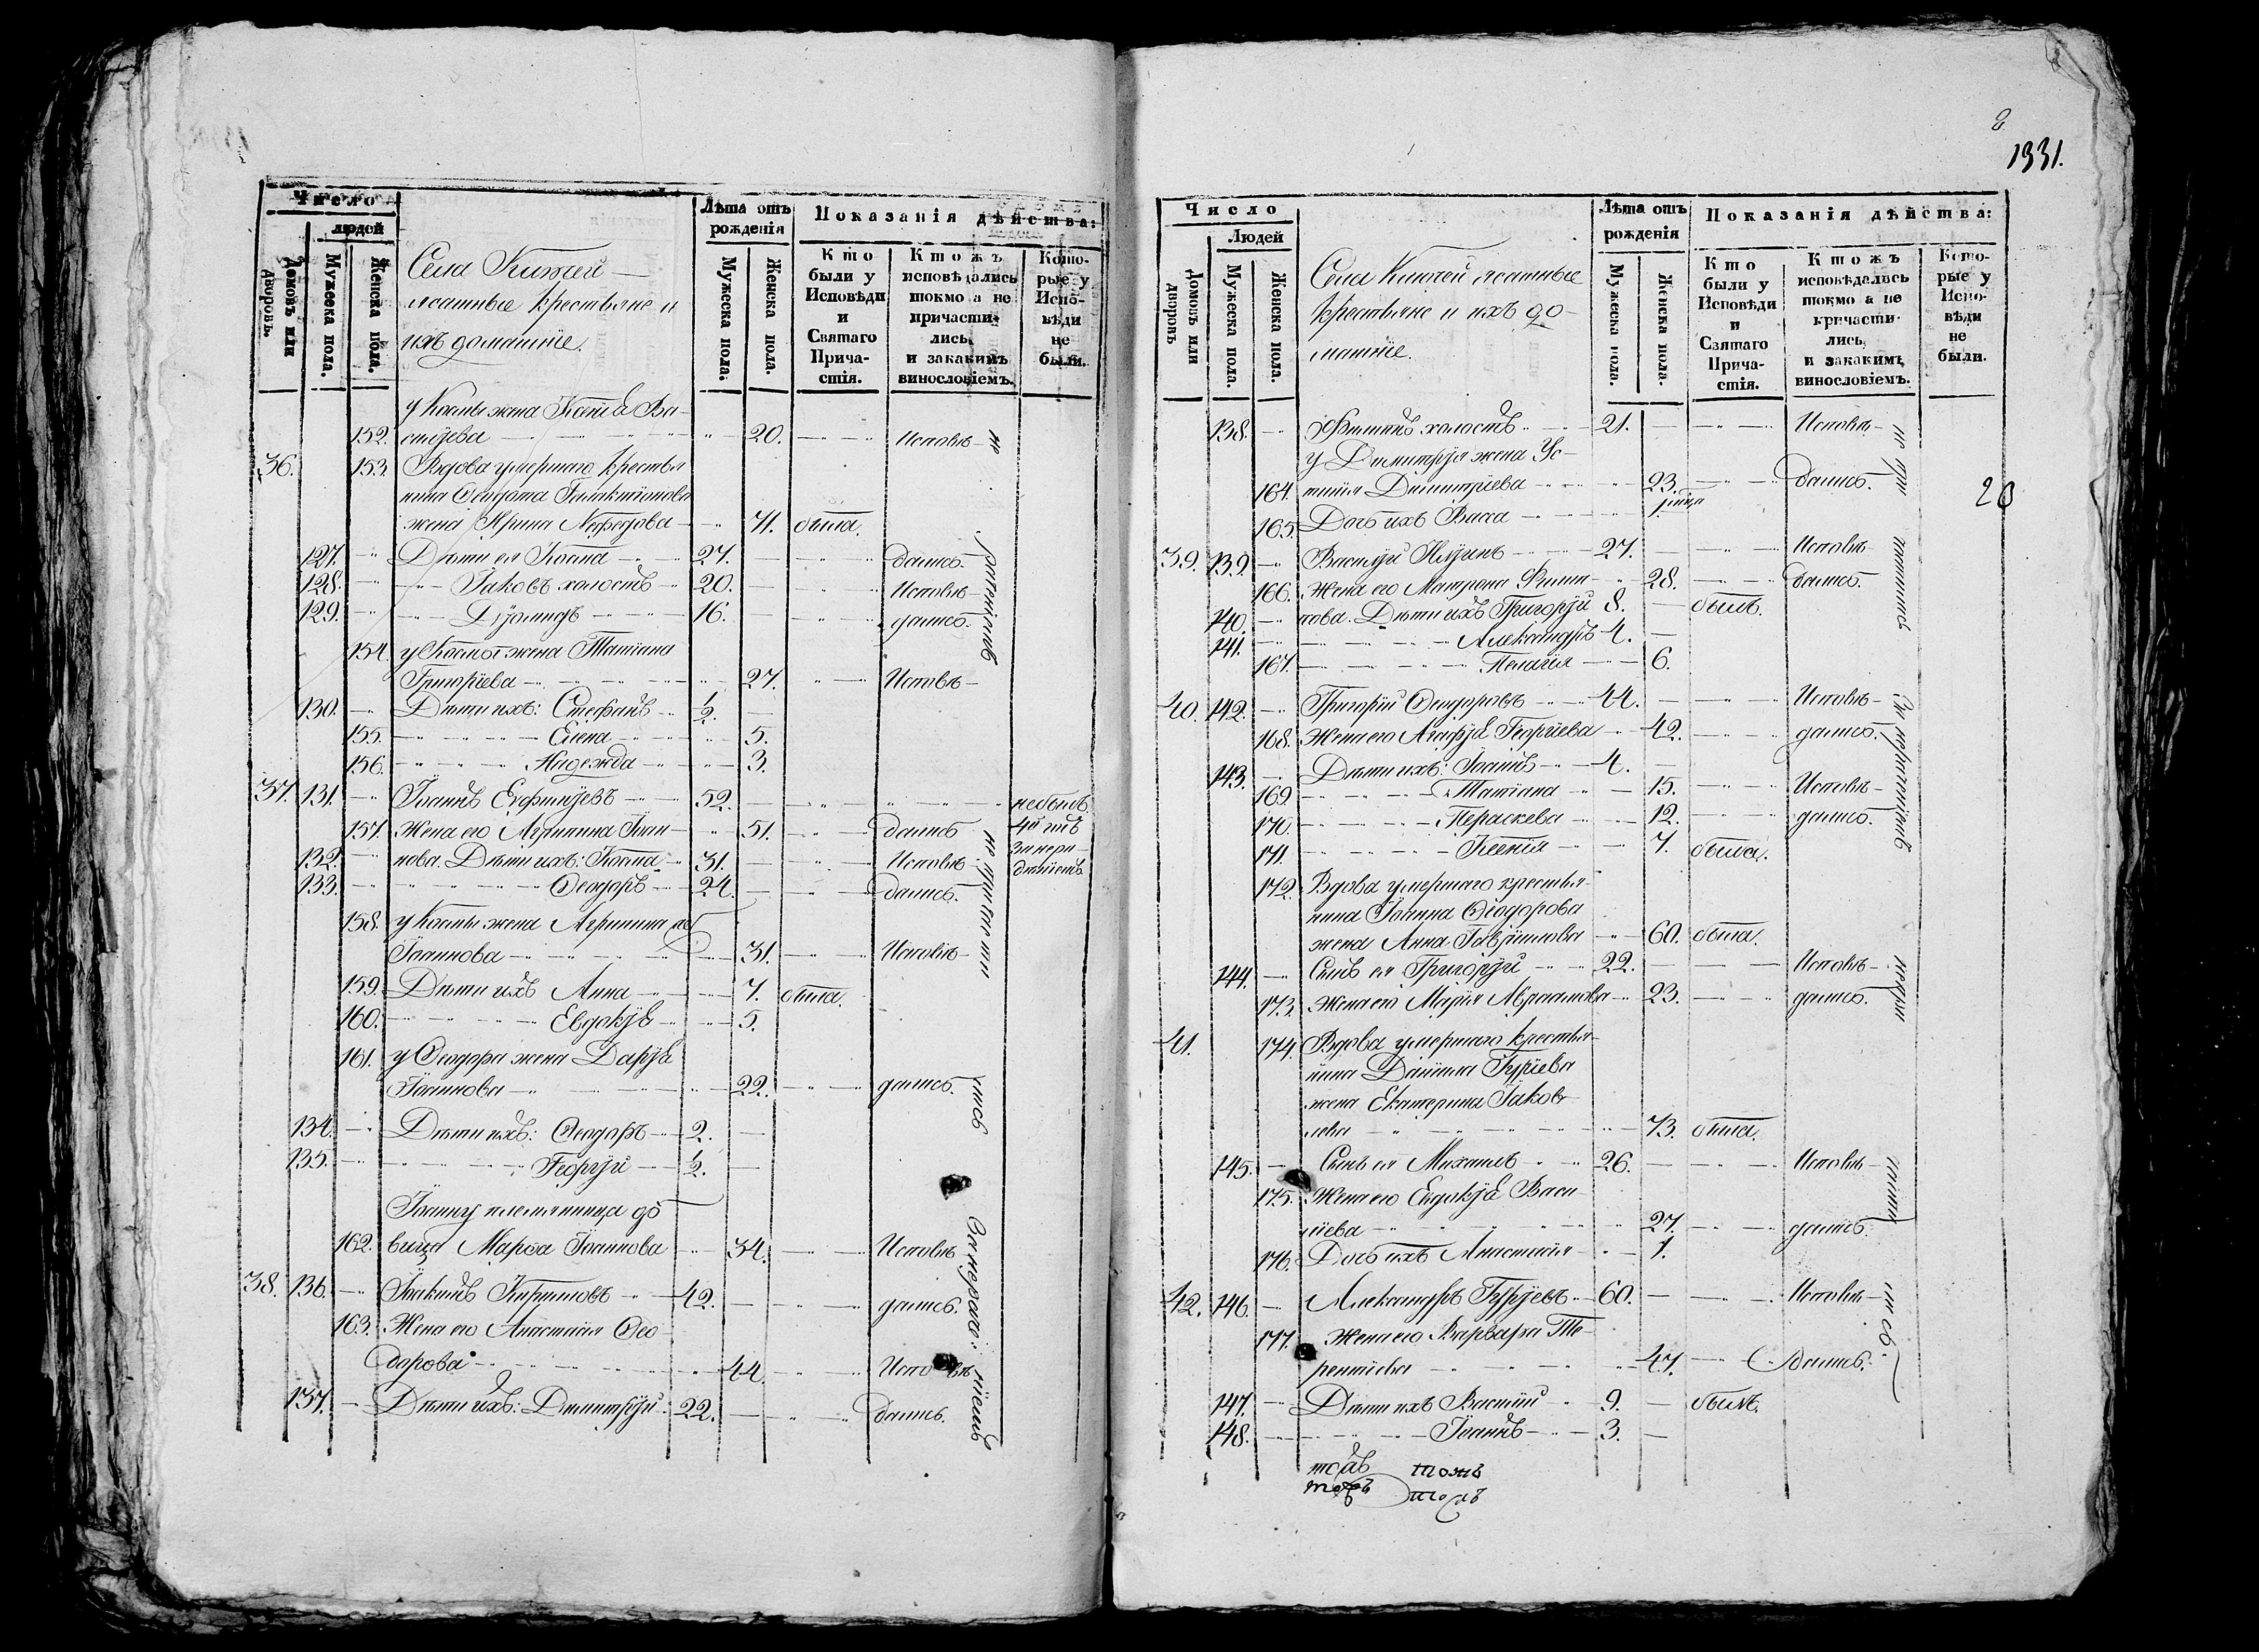 1331.
Число
людей
Домовъ или дворовъ.
Мужеска пола.
Женска пола.
Села
ясашные крестьяне и
ихъ домашніе.
Лѣта отъ рожденія
Мужеска пола.
Женска пола.
Показанія дѣйства:
Кто были у Исповѣди и Святаго Причастія.
Ктожъ исповѣдались токмо а не причастились, и закакимъ винословіемъ.
Которые у Исповѣди не были.
у Космы жена
152. 20. Исповѣ- не
36. 153. Вдова умершаго крестья
нина Ѳеодота Галактіонова
жена Ирина Меѳедова 71. была.
127. Дѣти ея Косма 27. дались.
128. Іаковъ холостъ 20. Исповѣ-
129. 16. дались.
154. у Космы жена Татіана
Григоріева 27. Исповѣ-
130. Дѣти ихъ: Стефанъ 1/2.
155. Елена 5.
156. Надежда 3.
37. 131. Іоаннъ 52. не былъ
157. Жена его Агрипина Іоан- 51. дались
132. нова. Дѣти ихъ: Косма 31. Исповѣ-
133. Ѳеодоръ 24. дались.
158. у Космы жена Агрипина
Іоаннова 31. Исповѣ-
159. Дѣти ихъ Анна 7. была.
160. Евдокія 5.
161. у Ѳеодора жена Дарія
Іоаннова 22. дались.
134. Дѣти ихъ: Ѳеодоръ 2.
135. Георгій 1/2.
Іоанну племянница дѣ
162. вица Марѳа Іоаннова 34. Исповѣ-
38. 136. Іоакимъ Кириловъ 42. дались.
163. Жена его Анастасія Ѳео
дорова 44. Исповѣ-
137. Дѣти ихъ: Димитрій 22. дались.
Число
Людей
Домовъ или дворовъ
Мужеска пола.
Женска пола.
Села Ключей ясашные
крестьяне и ихъ до-
машніе.
Лѣта отъ рожденія
Мужеска пола.
Женска пола.
Показанія дѣйства:
Кто были у Исповѣди и Святаго Причастія.
Ктожъ исповѣдались токмо а не кричастились, и закакимъ винословіемъ.
Которые у Исповѣди не были.
138. холостъ 21. Исповѣ-
у Димитрія жена Ус-
164. тинія Димитріева 23. дались.
165. Дочь ихъ Васса
39. 139. Василій 27. Исповѣ-
166. Жена его Матрона Филип- 28. дались.
140. пова. Дѣти ихъ Григорій 8. былъ.
141. Александръ 4.
167. Пелагія 6.
40. 142. Григорій Ѳеодоровъ 44. Исповѣ-
168. Жена его Агафія Георгіева 42. дались.
143. Дѣти ихъ: Іоаннъ 4.
169. Татіана 15. Исповѣ-
170. Параскева 12. дались.
171. Ксенія 7. была.
172. Вдова умершаго крестья-
нина Іоанна Ѳеодорова
жена Анна Гавріилова 60. была.
144. Сынъ ея Григорій 22. Исповѣ-
173. Жена его Марія Авраамова 23. дались.
41. 174. Вдова умершаго крестья-
нина Даніила Гуріева
жена Екатерина Іаков-
лева 73. была.
145. Сынъ ея Михаилъ 26. Исповѣ-
175. Жена его Евдокія Васи-
ліева 27. дались.
176. Дочь ихъ Анастасія 1.
42. 146. Александръ Гуріевъ 60. Исповѣ-
177. Жена его Варвара Те-
рентіева 47. дались.
147. Дѣти ихъ Василій 9. былъ.
148. Іоаннъ 3.